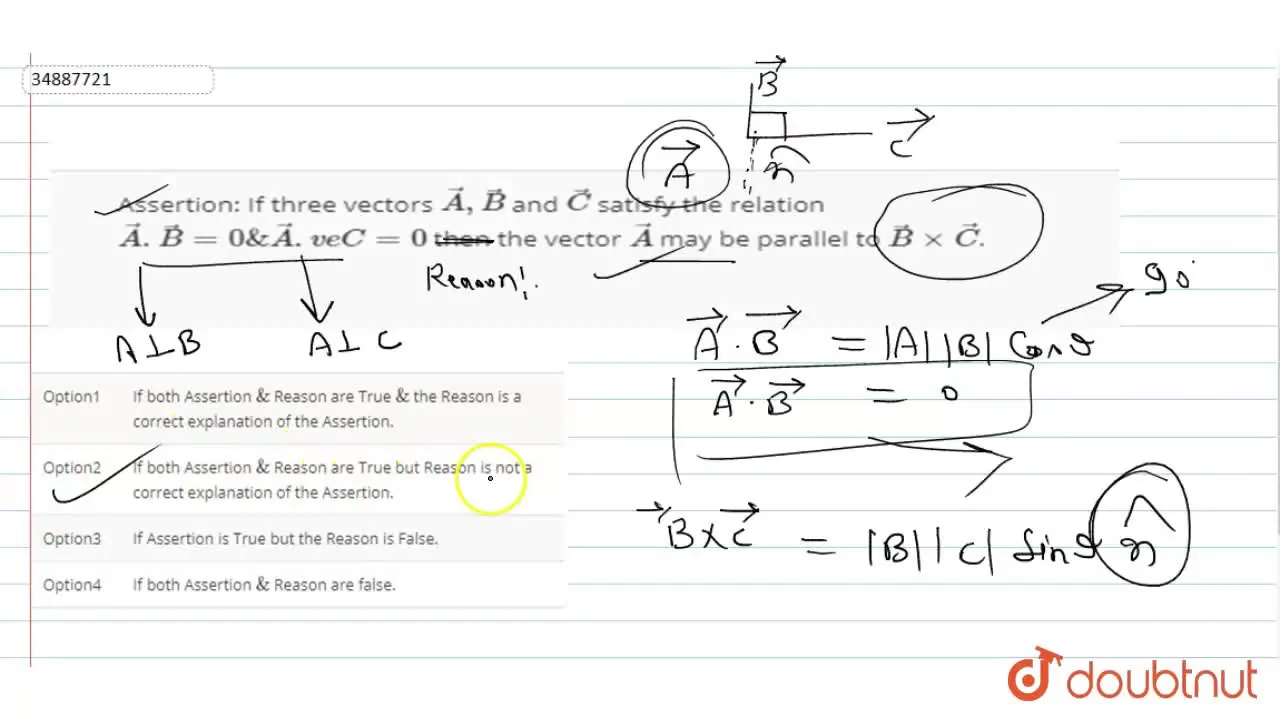 34887721
B
C
A
n
Assertion: If three vectors A, B and C satisfy the relation
A. B = 0& A. veC = 0 then the vector A may be parallel to B × C.
Reason!.
90
A⊥B A⊥C
A . B = |A| |B| Cosθ
A . B = 0
Option1 If both Assertion & Reason are True & the Reason is a
correct explanation of the Assertion.
Option2 If both Assertion & Reason are True but Reason is not a
correct explanation of the Assertion.
B×C = |B| |C| Sinθ n
Option3 If Assertion is True but the Reason is False.
Option4 If both Assertion & Reason are false.
doubtnut